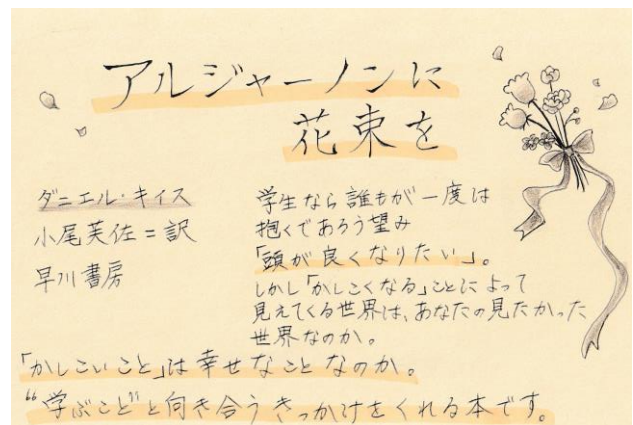 アルジャーノンに
花束を
ダニエル・キイス
小尾芙佐=訳
早川書房
学生なら誰もが一度は
抱くであろう望み
「頭が良くなりたい」。
しかし「かしこくなる」ことによって
見えてくる世界は、あなたの見たかった
世界なのか。
「かしこいこと」は幸せなことなのか。
“学ぶこと”と向き合うきっかけをくれる本です。